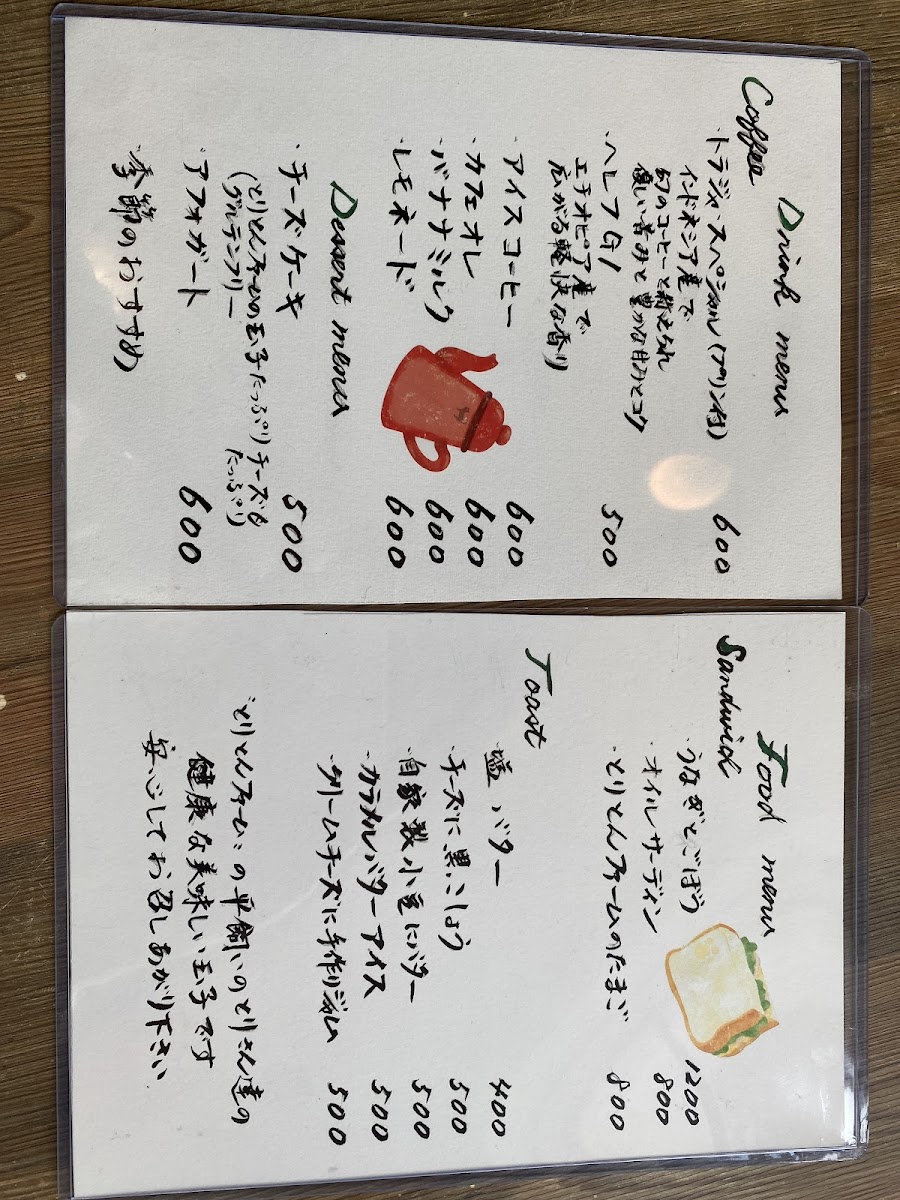 Drink menu
Coffee
・トラジャ・スペシャル(プリン付) 600
インドネシア産で
幻のコーヒーと称えられ
優しい苦みと豊かな甘みとコク
・ヘレフG1 500
エチオピア産で
広がる軽快な香り
・アイスコーヒー 600
・カフェオレ 600
・バナナミルク 600
・レモネード 600
Dessert menu
・チーズケーキ 500
(とりとんファームの玉子たっぷりチーズもたっぷり
(グルテンフリー)
・アフォガート 600
季節のおすすめ
Food menu
Sandwich
・うなぎとごぼう 1200
・オイルサーディン 800
・とりとんファームのたまご 800
Toast
・塩バター 400
・チーズに黒こしょう 500
・自家製小豆にバター 500
・カラメルバターアイス 500
・クリームチーズに手作りジャム 500
"とりとんファーム"の平飼いのとりさん達の
健康な美味しい玉子です
安心してお召しあがり下さい